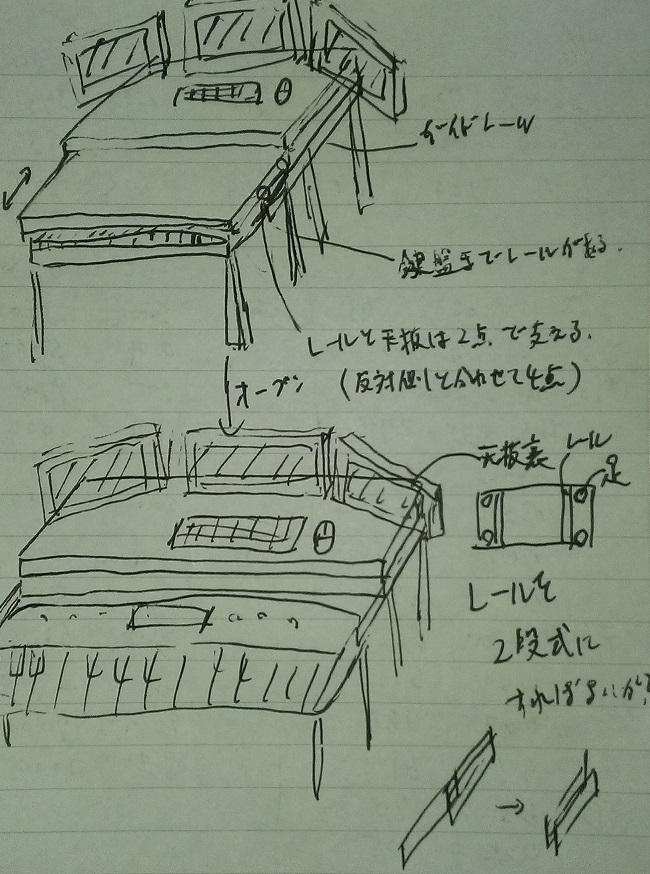 ガイドレール
鍵盤までレールがある.
レールと天板は2点で支える.
(反対側と合わせて4点)
オープン
天板裏
レール
足
レールを
2段式に
すればよいか?